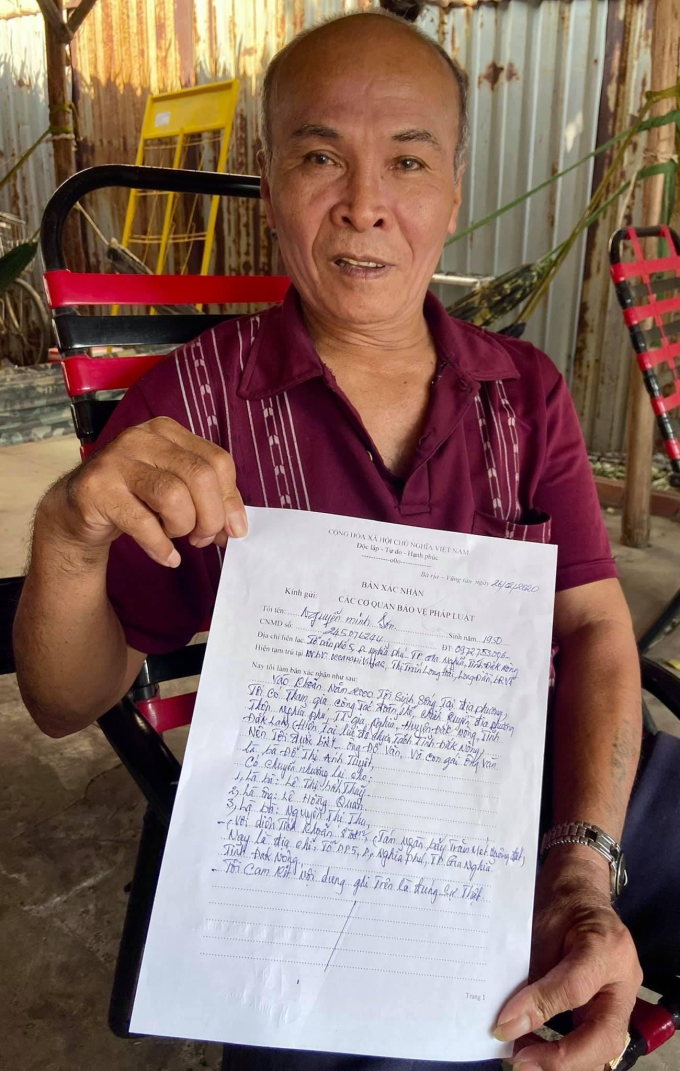 CỘNG HÒA XÃ HỘI CHỦ NGHĨA VIỆT NAM
Độc lập - Tự do - Hạnh phúc
Bà rịa - Vũng tàu ngày /2020
BẢN XÁC NHẬN
Kính gửi: CÁC CƠ QUAN BẢO VỆ PHÁP LUẬT
Tôi tên: Nguyễn minh Sơn. Sinh năm: 1950
CNMD số: 245076244 ĐT: 0972753096
Địa chỉ liên lạc: Tổ dân phố 5, P. nghĩa phú, TP. Gia Nghĩa, Tỉnh Đắk Nông
Hiện tạm trú tại: Thị Trấn Long Hải, Long Điền, BR-VT
Nay tôi làm bản xác nhận như sau:
Vào Khoản Năm 2000. Tôi Sinh Sống Tại địa phương,
Tôi Có Tham gia công Tác đoàn thể, chính quyền địa phương
Thôn Nghĩa phú, TT-gia Nghĩa, Huyện Đắk Nông, Tỉnh
Đắk Lắk (Hiện tại là đã chia Tách Tỉnh Đắk Nông)
Nên Tôi được biết ông Đỗ Văn, Và con gái ông Văn
là bà Đỗ Thị Anh Thuyết
Có chuyển nhượng lại cho:
1, Là bà: Lê Thị Thuỷ
2, Là ông: Lê Hồng Quan
3, Là bà: Nguyễn Thị Thu,
- Với diện Tích Khoản (Tám Ngàn Bảy Trăm Mét Vuông đất)
Nay là địa chỉ: Tổ DP5, P, Nghĩa phú, TP. Gia Nghĩa
Tỉnh Đắk Nông
- Tôi Cam Kết Nội dung ghi Trên là đúng Sự Thật.
Trang 1